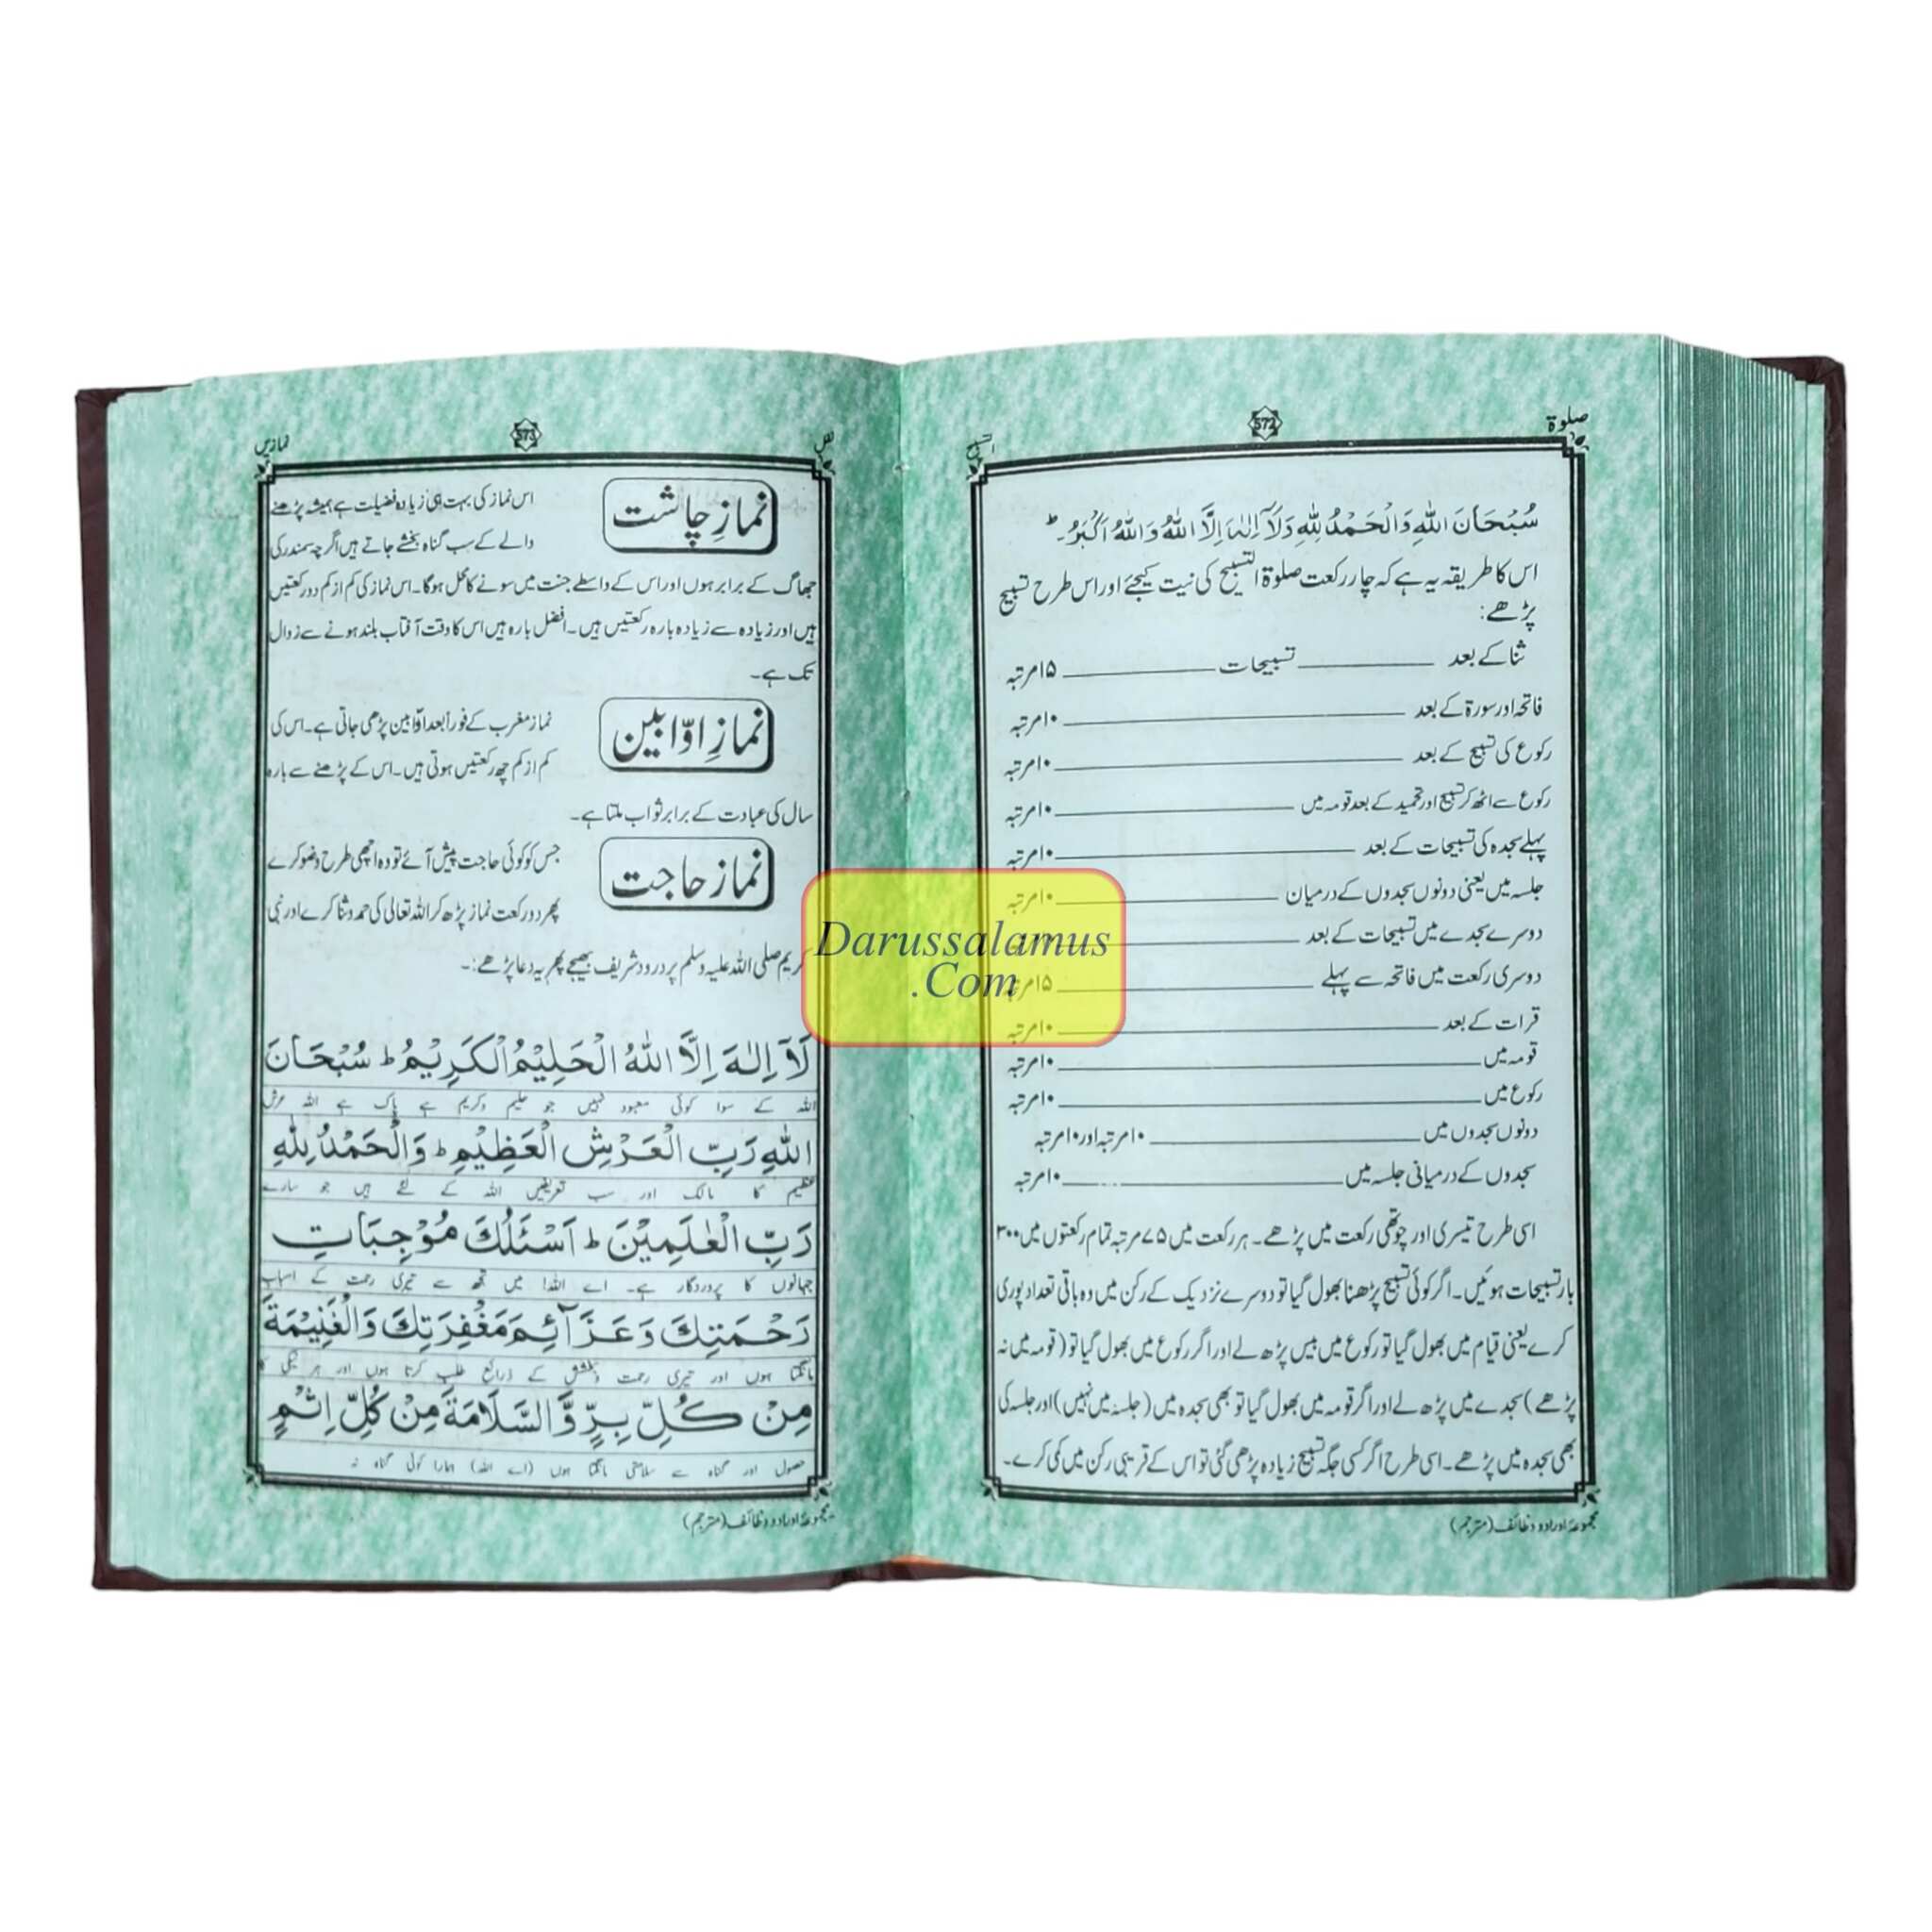 صلوٰۃ
572
التسبیح
سُبْحَانَ اللّٰهِ وَالْحَمْدُ لِلّٰهِ وَلَآ اِلٰهَ اِلَّا اللّٰهُ وَاللّٰهُ اَكْبَرُ ط۔
اس کا طریقہ یہ ہے کہ چار رکعت صلوٰۃ التسبیح کی نیت کیجئے اور اس طرح تسبیح
پڑھے:
ثنا کے بعد ــــ تسبیحات ــــ ۱۵مرتبہ
فاتحہ اور سورۃ کے بعد ــــ ۱۰مرتبہ
رکوع کی تسبیح کے بعد ــــ ۱۰مرتبہ
رکوع سے اٹھ کر تسبیح اور تحمید کے بعد قومہ میں ــــ ۱۰مرتبہ
پہلے سجدہ کی تسبیحات کے بعد ــــ ۱۰مرتبہ
جلسہ میں یعنی دونوں سجدوں کے درمیان ــــ ۱۰مرتبہ
دوسرے سجدے میں تسبیحات کے بعد ــــ
دوسری رکعت میں فاتحہ سے پہلے ــــ ۱۵مرتبہ
قرات کے بعد ــــ ۱۰مرتبہ
قومہ میں ــــ ۱۰مرتبہ
رکوع میں ــــ ۱۰مرتبہ
دونوں سجدوں میں ــــ ۱۰مرتبہ اور ۱۰مرتبہ
سجدوں کے درمیانی جلسہ میں ــــ ۱۰مرتبہ
اسی طرح تیسری اور چوتھی رکعت میں پڑھے۔ ہر رکعت میں ۷۵ مرتبہ تمام رکعتوں میں ۳۰۰
بار تسبیحات ہوئیں۔ اگر کوئی تسبیح پڑھنا بھول گیا تو دوسرے نزدیک کے رکن میں وہ باقی تعداد پوری
کرے یعنی قیام میں بھول گیا تو رکوع میں بیس پڑھ لے اور اگر رکوع میں بھول گیا تو (قومہ میں نہ
پڑھے) سجدے میں پڑھ لے اور اگر قومہ میں بھول گیا تو بھی سجدہ میں (جلسہ میں نہیں) اور جلسہ کی
بھی سجدہ میں پڑھے۔ اسی طرح اگر کسی جگہ تسبیح زیادہ پڑھی گئی تو اس کے قریبی رکن میں کمی کرے۔
مجموعۂ اوراد و وظائف (مترجم)
573
نمازیں
نمازِ چاشت
اس نماز کی بہت ہی زیادہ فضیلت ہے ہمیشہ پڑھنے
والے کے سب گناہ بخشے جاتے ہیں اگرچہ سمندر کی
جھاگ کے برابر ہوں اور اس کے واسطے جنت میں سونے کا محل ہوگا۔ اس نماز کی کم از کم دو رکعتیں
ہیں اور زیادہ سے زیادہ بارہ رکعتیں ہیں۔ افضل بارہ ہیں اس کا وقت آفتاب بلند ہونے سے زوال
تک ہے۔
نمازِ اوّابین
نماز مغرب کے فوراً بعد اوّابین پڑھی جاتی ہے۔ اس کی
کم از کم چھ رکعتیں ہوتی ہیں۔ اس کے پڑھنے سے بارہ
سال کی عبادت کے برابر ثواب ملتا ہے۔
نماز حاجت
جس کو کوئی حاجت پیش آئے تو وہ اچھی طرح وضو کرے
پھر دو رکعت نماز پڑھ کر اللہ تعالیٰ کی حمد و ثنا کرے اور نبی
کریم صلی اللہ علیہ وسلم پر درود شریف بھیجے پھر یہ دعا پڑھے:۔
لَآ اِلٰهَ اِلَّا اللّٰهُ الْحَلِيْمُ الْكَرِيْمُ ط سُبْحَانَ
اللہ کے سوا کوئی معبود نہیں جو حلیم و کریم ہے پاک ہے اللہ عرش
اللّٰهِ رَبِّ الْعَرْشِ الْعَظِيْمِ ط وَالْحَمْدُ لِلّٰهِ
عظیم کا مالک اور سب تعریفیں اللہ کے لئے ہیں جو سارے
رَبِّ الْعٰلَمِيْنَ ط اَسْئَلُكَ مُوْجِبَاتِ
جہانوں کا پروردگار ہے۔ اے اللہ! میں تجھ سے تیری رحمت کے اسباب
رَحْمَتِكَ وَعَزَآئِمَ مَغْفِرَتِكَ وَالْغَنِيْمَةَ
مانگتا ہوں اور تیری رحمت و بخشش کے ذرائع طلب کرتا ہوں اور ہر نیکی کا
مِنْ كُلِّ بِرٍّ وَّالسَّلَامَةَ مِنْ كُلِّ اِثْمٍ
حصول اور گناہ سے سلامتی مانگتا ہوں (اے اللہ) ہمارا کوئی گناہ نہ
مجموعۂ اوراد و وظائف (مترجم)
Darussalamus
.Com